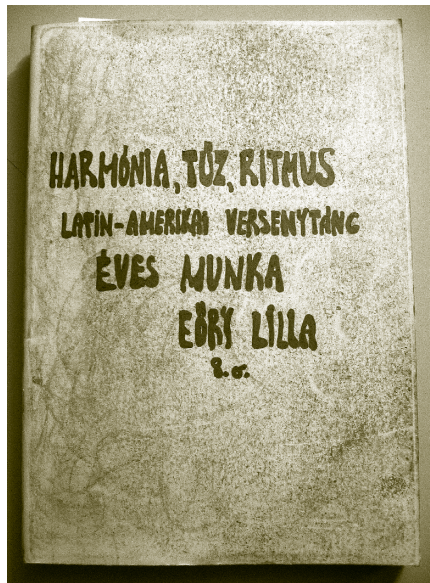 HARMÓNIA, TŰZ, RITMUS
LATIN-AMERIKAI VERSENYTÁNC
ÉVES MUNKA
EŐRY LILLA
8.o.